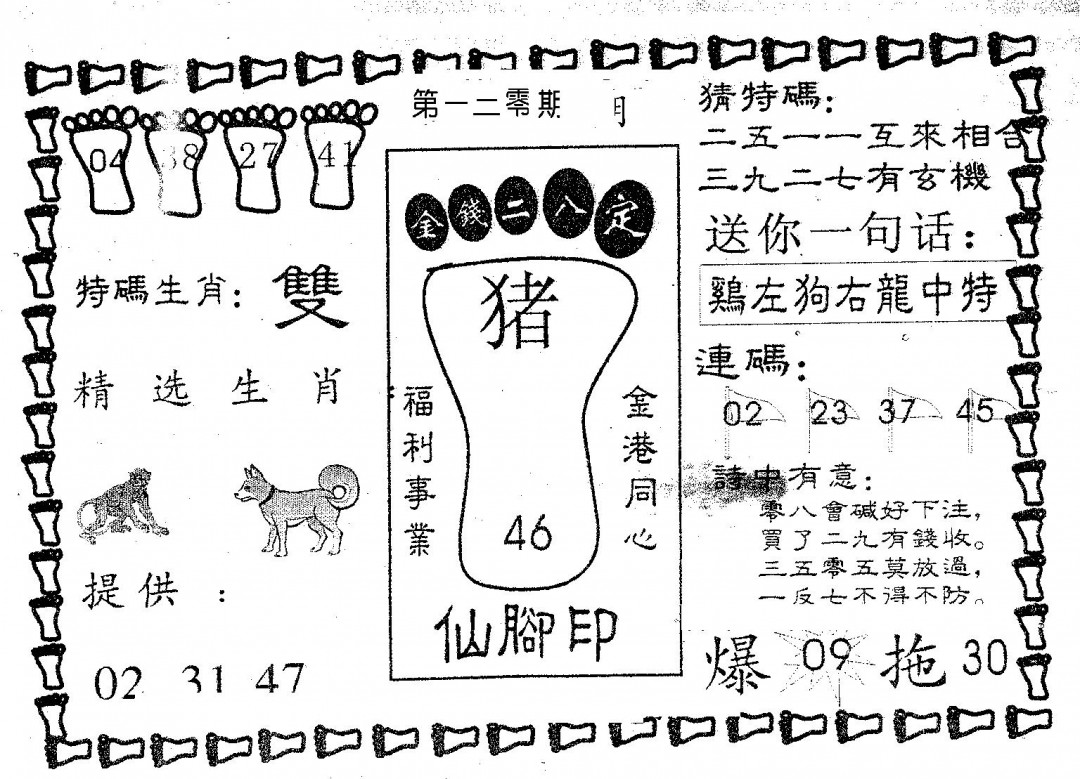 第一二零期 月
04 38 27 41
特碼生肖：雙
精选生肖
提供：
02 31 47
金錢二八定
猪
福利事業
金港同心
46
仙腳印
猜特碼：
二五一一互來相合
三九二七有玄機
送你一句话：
鷄左狗右龍中特
連碼：
02 23 37 45
詩中有意：
零八會碱好下注，
買了二九有錢收。
三五零五莫放過，
一反七不得不防。
爆 09 拖 30